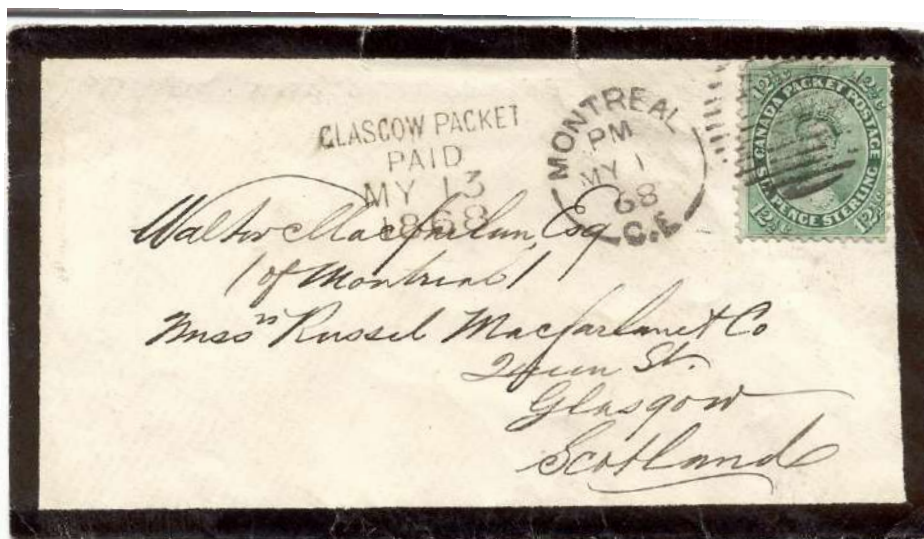 GLASGOW PACKET
PAID
MY 13
1868
MONTREAL
PM
MY 1
68
C.E
12½ c 12½ c
CANADA PACKET POSTAGE
SIX PENCE STERLING
12½ c 12½ c
Walter Macfarlan, Esq
/ of Montreal /
Messrs Russel Macfarlane & Co
Queen St.
Glasgow
Scotland